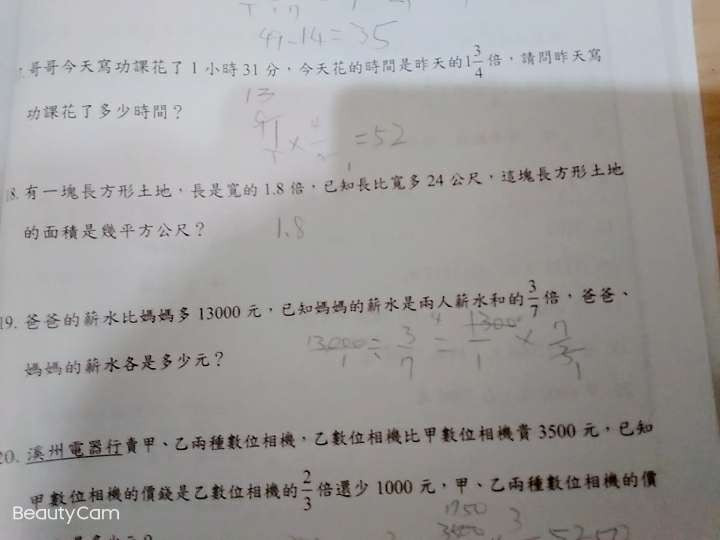 49-14=35
哥哥今天寫功課花了1小時31分,今天花的時間是昨天的1 3/4 倍,請問昨天寫
功課花了多少時間?
13
91/1 × 4/7 =52
18. 有一塊長方形土地,長是寬的1.8倍,已知長比寬多24公尺,這塊長方形土地
的面積是幾平方公尺?
1.8
19. 爸爸的薪水比媽媽多13000元,已知媽媽的薪水是兩人薪水和的 3/7 倍,爸爸、
媽媽的薪水各是多少元?
13000/1 ÷ 3/7 = 13000/1 × 7/3
20. 溪州電器行賣甲、乙兩種數位相機,乙數位相機比甲數位相機貴3500元,已知
甲數位相機的價錢是乙數位相機的 2/3 倍還少1000元,甲、乙兩種數位相機的價
1750
3500
BeautyCam